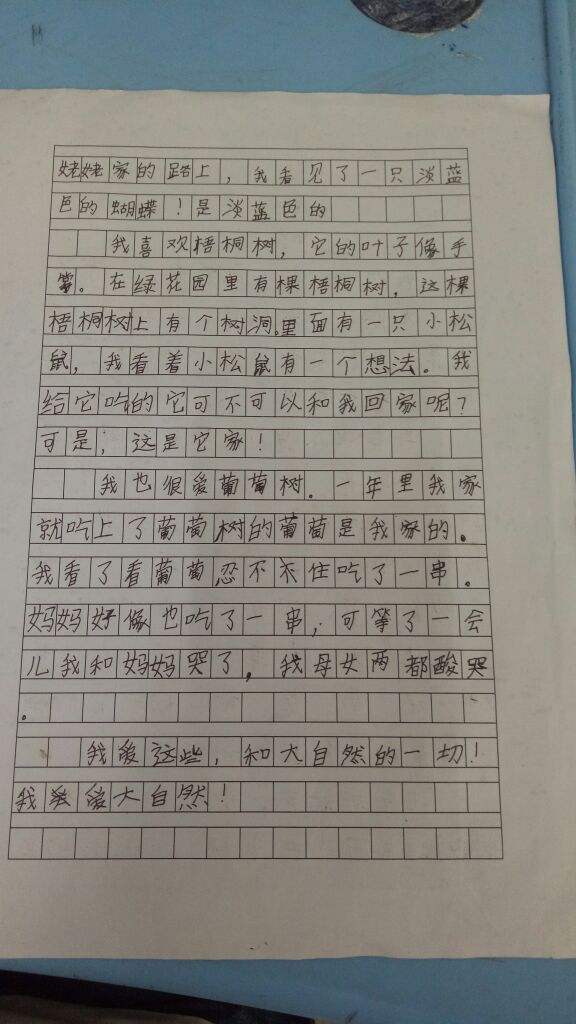 姥姥家的路上，我看见了一只淡蓝
色的蝴蝶！是淡蓝色的
我喜欢梧桐树，它的叶子像手
掌。在绿花园里有棵梧桐树，这棵
梧桐树上有个树洞。里面有一只小松
鼠，我看着小松鼠有一个想法。我
给它吃的它可不可以和我回家呢？
可是；这是它家！
我也很爱葡萄树。一年里我家
就吃上了葡萄树的葡萄是我家的。
我看了看葡萄忍不住吃了一串。
妈妈好像也吃了一串，可等了一会
儿我和妈妈哭了，我母女两都酸哭
。
我爱这些，和大自然的一切！
我爱大自然！